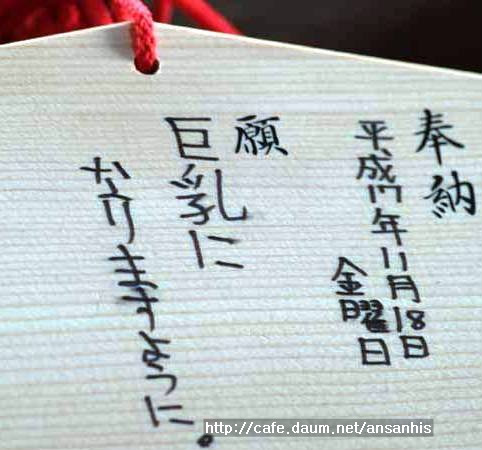 奉納
平成17年11月18日
金曜日
願
巨乳に
なりますように。
http://cafe.daum.net/ansanhis